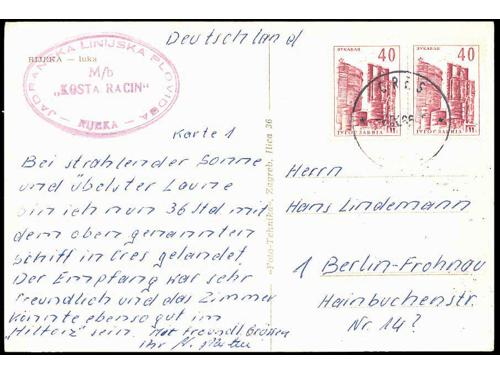 Deutschland
JADRANSKA LINIJSKA PLOVIDBA
M/b
„KOSTA RACIN"
RIJEKA
RIJEKA — luka
ДУБРОВНИК
40
ЈУГОСЛАВИЈА
40
JUGOSLAVIJA
CRES
Karte 1
Bei strahlender Sonne
und übelster Laune
bin ich nun 36 Std mit
dem oben genannten
Schiff in Cres gelandet.
Der Empfang war sehr
freundlich und das Zimmer
könnte ebenso gut im
"Hilton" sein. Mit freundl. Grüßen
Ihr
»Foto-Tehnika«, Zagreb, Ilica 36
Herrn
Hans Lindemann
1 Berlin-Frohnau
Hainbuchenstr.
Nr. 14?